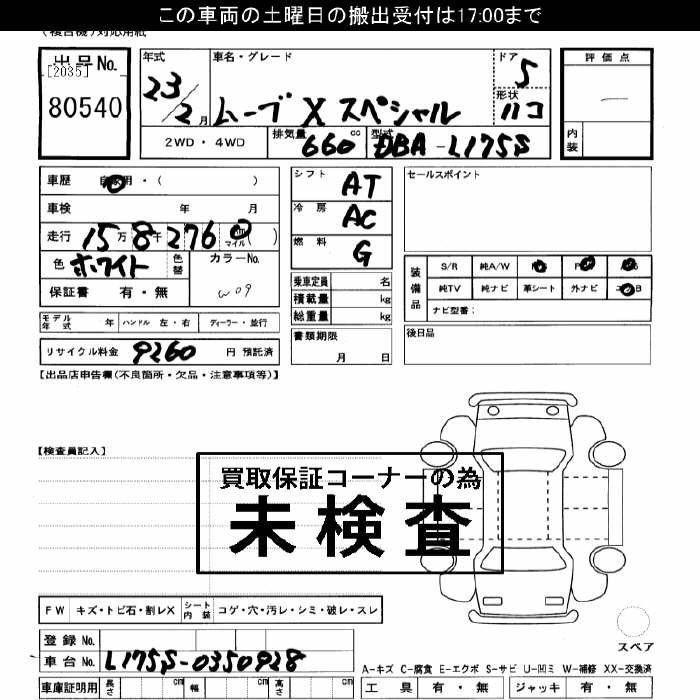 この車両の土曜日の搬出受付は17:00まで
(複合機)対応用紙
出品No.
[2035]
80540
年式
23/2月
車名・グレード
ムーブ X スペシャル
ドア
5
形状
ハコ
評価点
内装
2WD・4WD
排気量 660 cc
型式 DBA-L175S
車歴 自家用・( )
車検 年 月
走行 15万8千276 km マイル ( )
色 ホワイト 色替
カラーNo. W09
保証書 有・無
モデル年式 年 ハンドル 左・右 ディーラー・並行
リサイクル料金 9260 円 預託済
シフト AT
冷房 AC
燃料 G
乗車定員 名
積載量 kg
総重量 kg
書類期限
月 日
セールスポイント
装備品
S/R 純A/W
純TV 純ナビ 革シート 外ナビ
ナビ型番:
後日品
【出品店申告欄(不良箇所・欠品・注意事項等)】
【検査員記入】
買取保証コーナーの為
未検査
FW キズ・トビ石・割レX シート内装 コゲ・穴・汚レ・シミ・破レ・スレ
登録No.
車台No. L175S-0350928
車庫証明用 長さ cm 幅 cm 高さ cm
スペア
A-キズ C-腐食 E-エクボ S-サビ U-凹ミ W-補修 XX-交換済
工具 有・無 ジャッキ 有・無